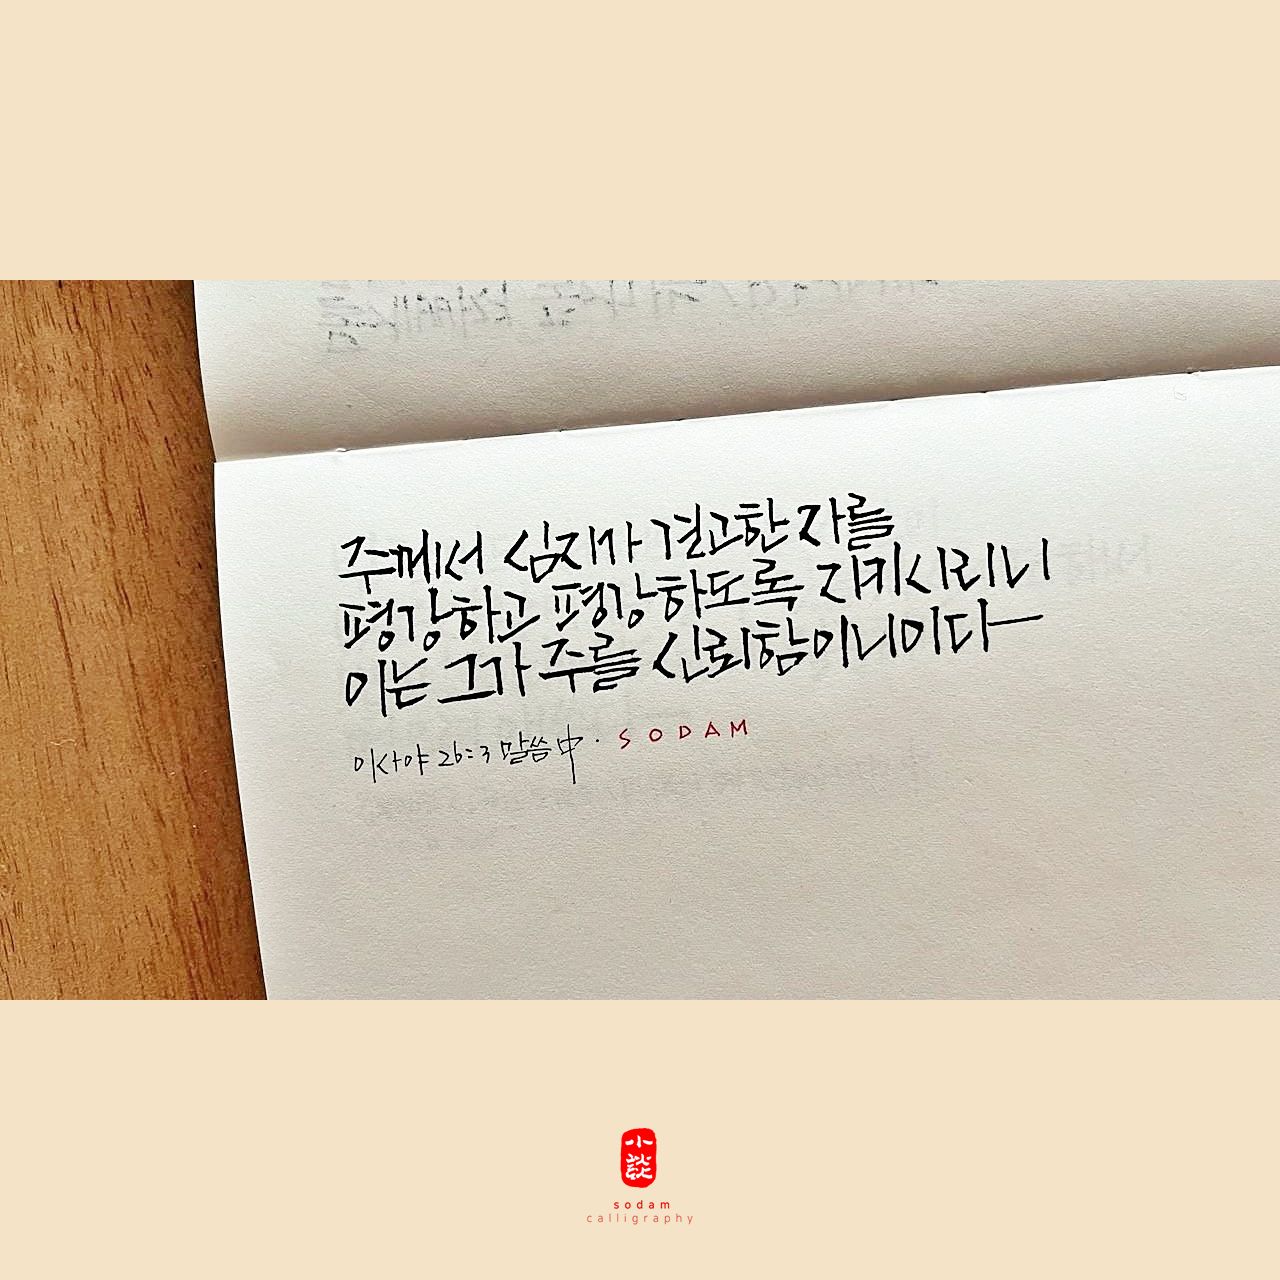 주께서 심지가 견고한 자를
평강하고 평강하도록 지키시리니
이는 그가 주를 신뢰함이니이다
이사야 26:3 말씀 中 · SODAM
小談
sodam
calligraphy